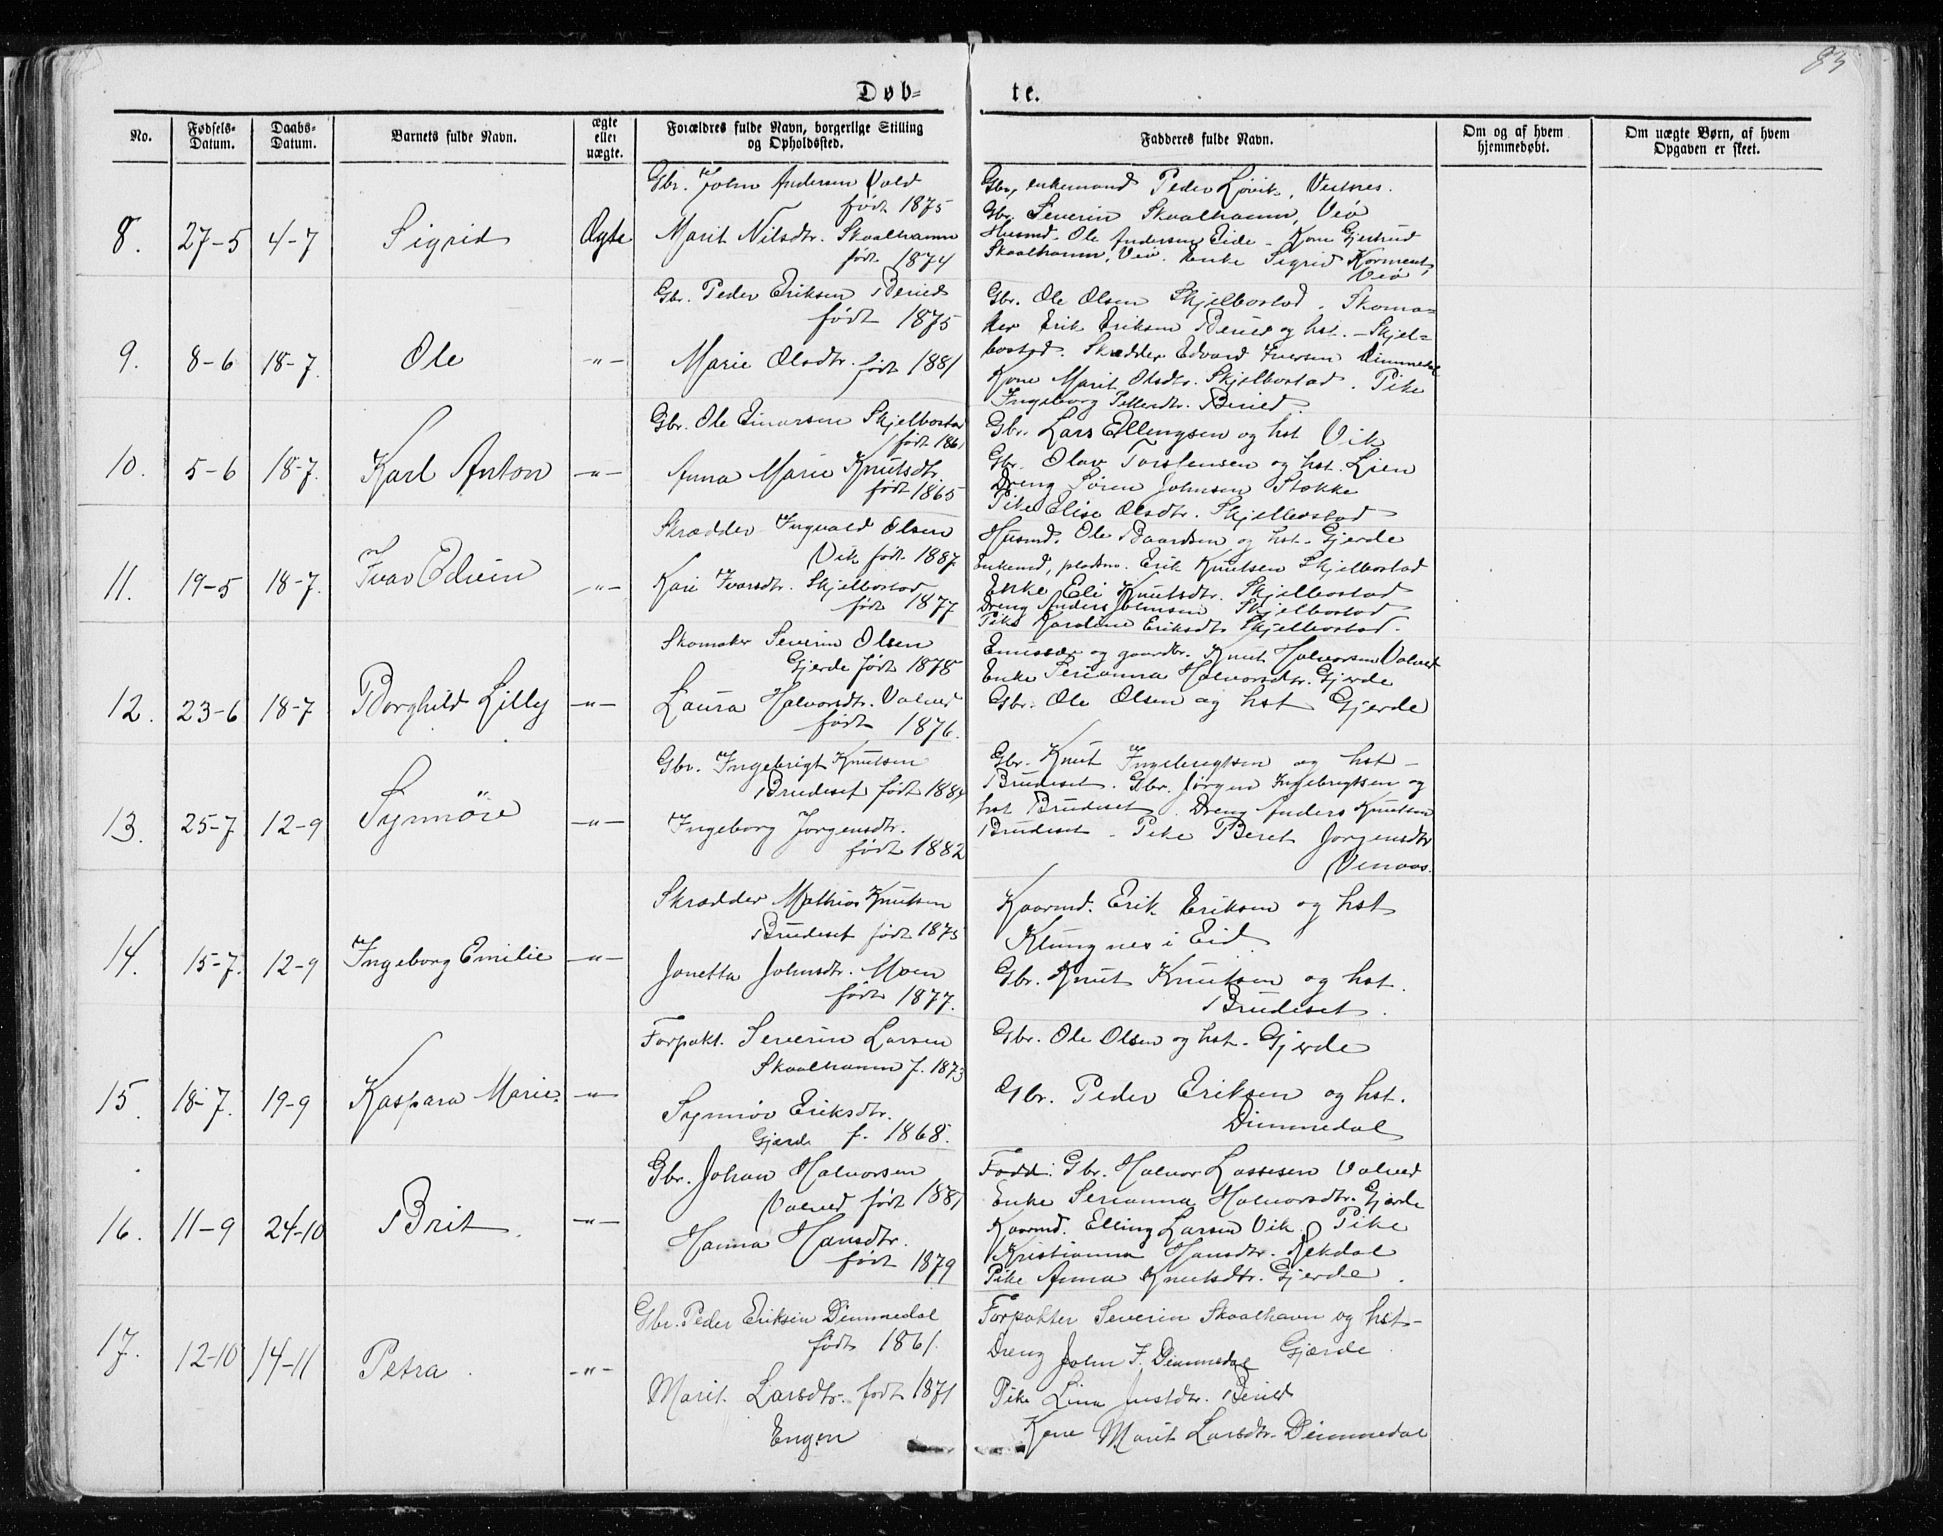 85
Døb=
te.
No.
Fødsels-
Datum.
Daabs-
Datum.
Barnets fulde Navn.
ægte
eller
uægte.
Forældres fulde Navn, borgerlige Stilling
og Opholdssted.
Fadderes fulde Navn.
Om og af hvem
hjemmedøbt.
Om uægte Børn, af hvem
Opgaven er skeet.
8. 27-5 4-7 Sigrid Ægte
Gbr. John Andersen Vold
født 1875
Marit Nilsdtr. Skaalhamn
født 1874
Gbr, enkemand Peder Løvik, Vestnes.
Gbr. Severin Skaalhamn, Veø
Husmd. Ole Andersen Eide - Kone Gjertrud
Skaalhamn, Veø. Enke Sigrid
Veø
9. 8-6 18-7. Ole -"-
Gbr. Peder Eriksen Beried
født 1875
Marie Olsdtr. født 1881
Gbr. Ole Olsen Skjelbostad. Skoma-
ker Erik Eriksen Beried og hst. - Skjel-
bostad. Skrædder Edvard Iversen Dimmedal
Kone Marit Olsdtr. Skjelbostad. Pike
Ingeborg Pettersdtr. Beried
10. 5-6 18-7. Karl Anton -"-
Gbr. Ole Einarsen Skjelbostad
født 1861
Anna Marie Knutsdtr.
født 1865
Gbr. Lars Ellingsen og hst Vik
Gbr. Olav Torstensen og hst. Lien
Dreng Søren Johnsen Stokke
Pike Elise Olsdtr. Skjelbostad
11. 19-5 18-7. Ivar Edvin -"-
Skrædder Ingvald Olsen
Vik født 1887.
Kari Ivarsdtr. Skjelbostad
født 1877
Husmd. Ole Baardsen og hst. Gjerde
Enkemd, pladsm. Erik Knutsen Skjelbostad
Enke Eli Knutsdtr. Skjelbostad
Dreng Anders Johnsen Skjelbostad
Pike Karoline Eriksdtr Skjelbostad.
12. 23-6 18-7 Borghild Lilly -"-
Skomaker Severin Olsen
Gjerde født 1878
Laura Halvorsdtr. Valved
født 1876.
Emissær og gaardbr. Knut Halvorsen Valved
Enke Serianna Halvorsdtr. Gjerde
Gbr. Ole Olsen og hst Gjerde
13. 25-7 12-9 Synnøve -"-
Gbr. Ingebrigt Knutsen
Brudeset født 1884
Ingeborg Jørgensdtr.
født 1882
Gbr. Knut Ingebrigtsen og hst -
Brudeset. Gbr. Jørgen Ingebrigtsen og
hst Brudeset. Dreng Anders Knutsen
Brudeset - Pike Beret Jørgensdtr
Venaas.
14. 15-7. 12-9 Ingeborg Emilie -"-
Skrædder Mathias Knutsen
Brudeset født 1875
Jonetta Johnsdtr. Moen
født 1877.
Kaarmd. Erik Eriksen og hst
Klungnes i Eid
Gbr. Knut Knutsen og hst.
Brudeset.
15. 18-7. 19-9 Kaspara Marie. -"-
Forpakt. Severin Larsen
Skaalhamn f. 1873
Synnøv Eriksdtr.
Gjærde f. 1868.
Gbr. Ole Olsen og hst. Gjerde
Gbr. Peder Eriksen og hst.
Dimmedal
16. 11-9 24-10 Brit. -"-
Gbr. Johan Halvorsen
Valved født 1881
Hanna Hansdtr.
født 1879
Fadd: Gbr. Halvor Lassesen Valved
Enke Serianna Halvorsdtr. Gjerde
Kaarmd. Elling Larsen Vik. Pike
Kristianna Hansdtr. Rekdal
Pike Anna Knutsdtr. Gjerde.
17. 12-10 14-11 Petra. -"-
Gbr. Peder Eriksen Dimmedal
født 1861.
Marit. Larsdtr. født 1871
Engen
Forpakter Severin Skaalhavn og hst-
Gjærde
Dreng John F. Dimmedal
Pike Lina Justdtr. Beried
Kone Marit Larsdtr. Dimmedal